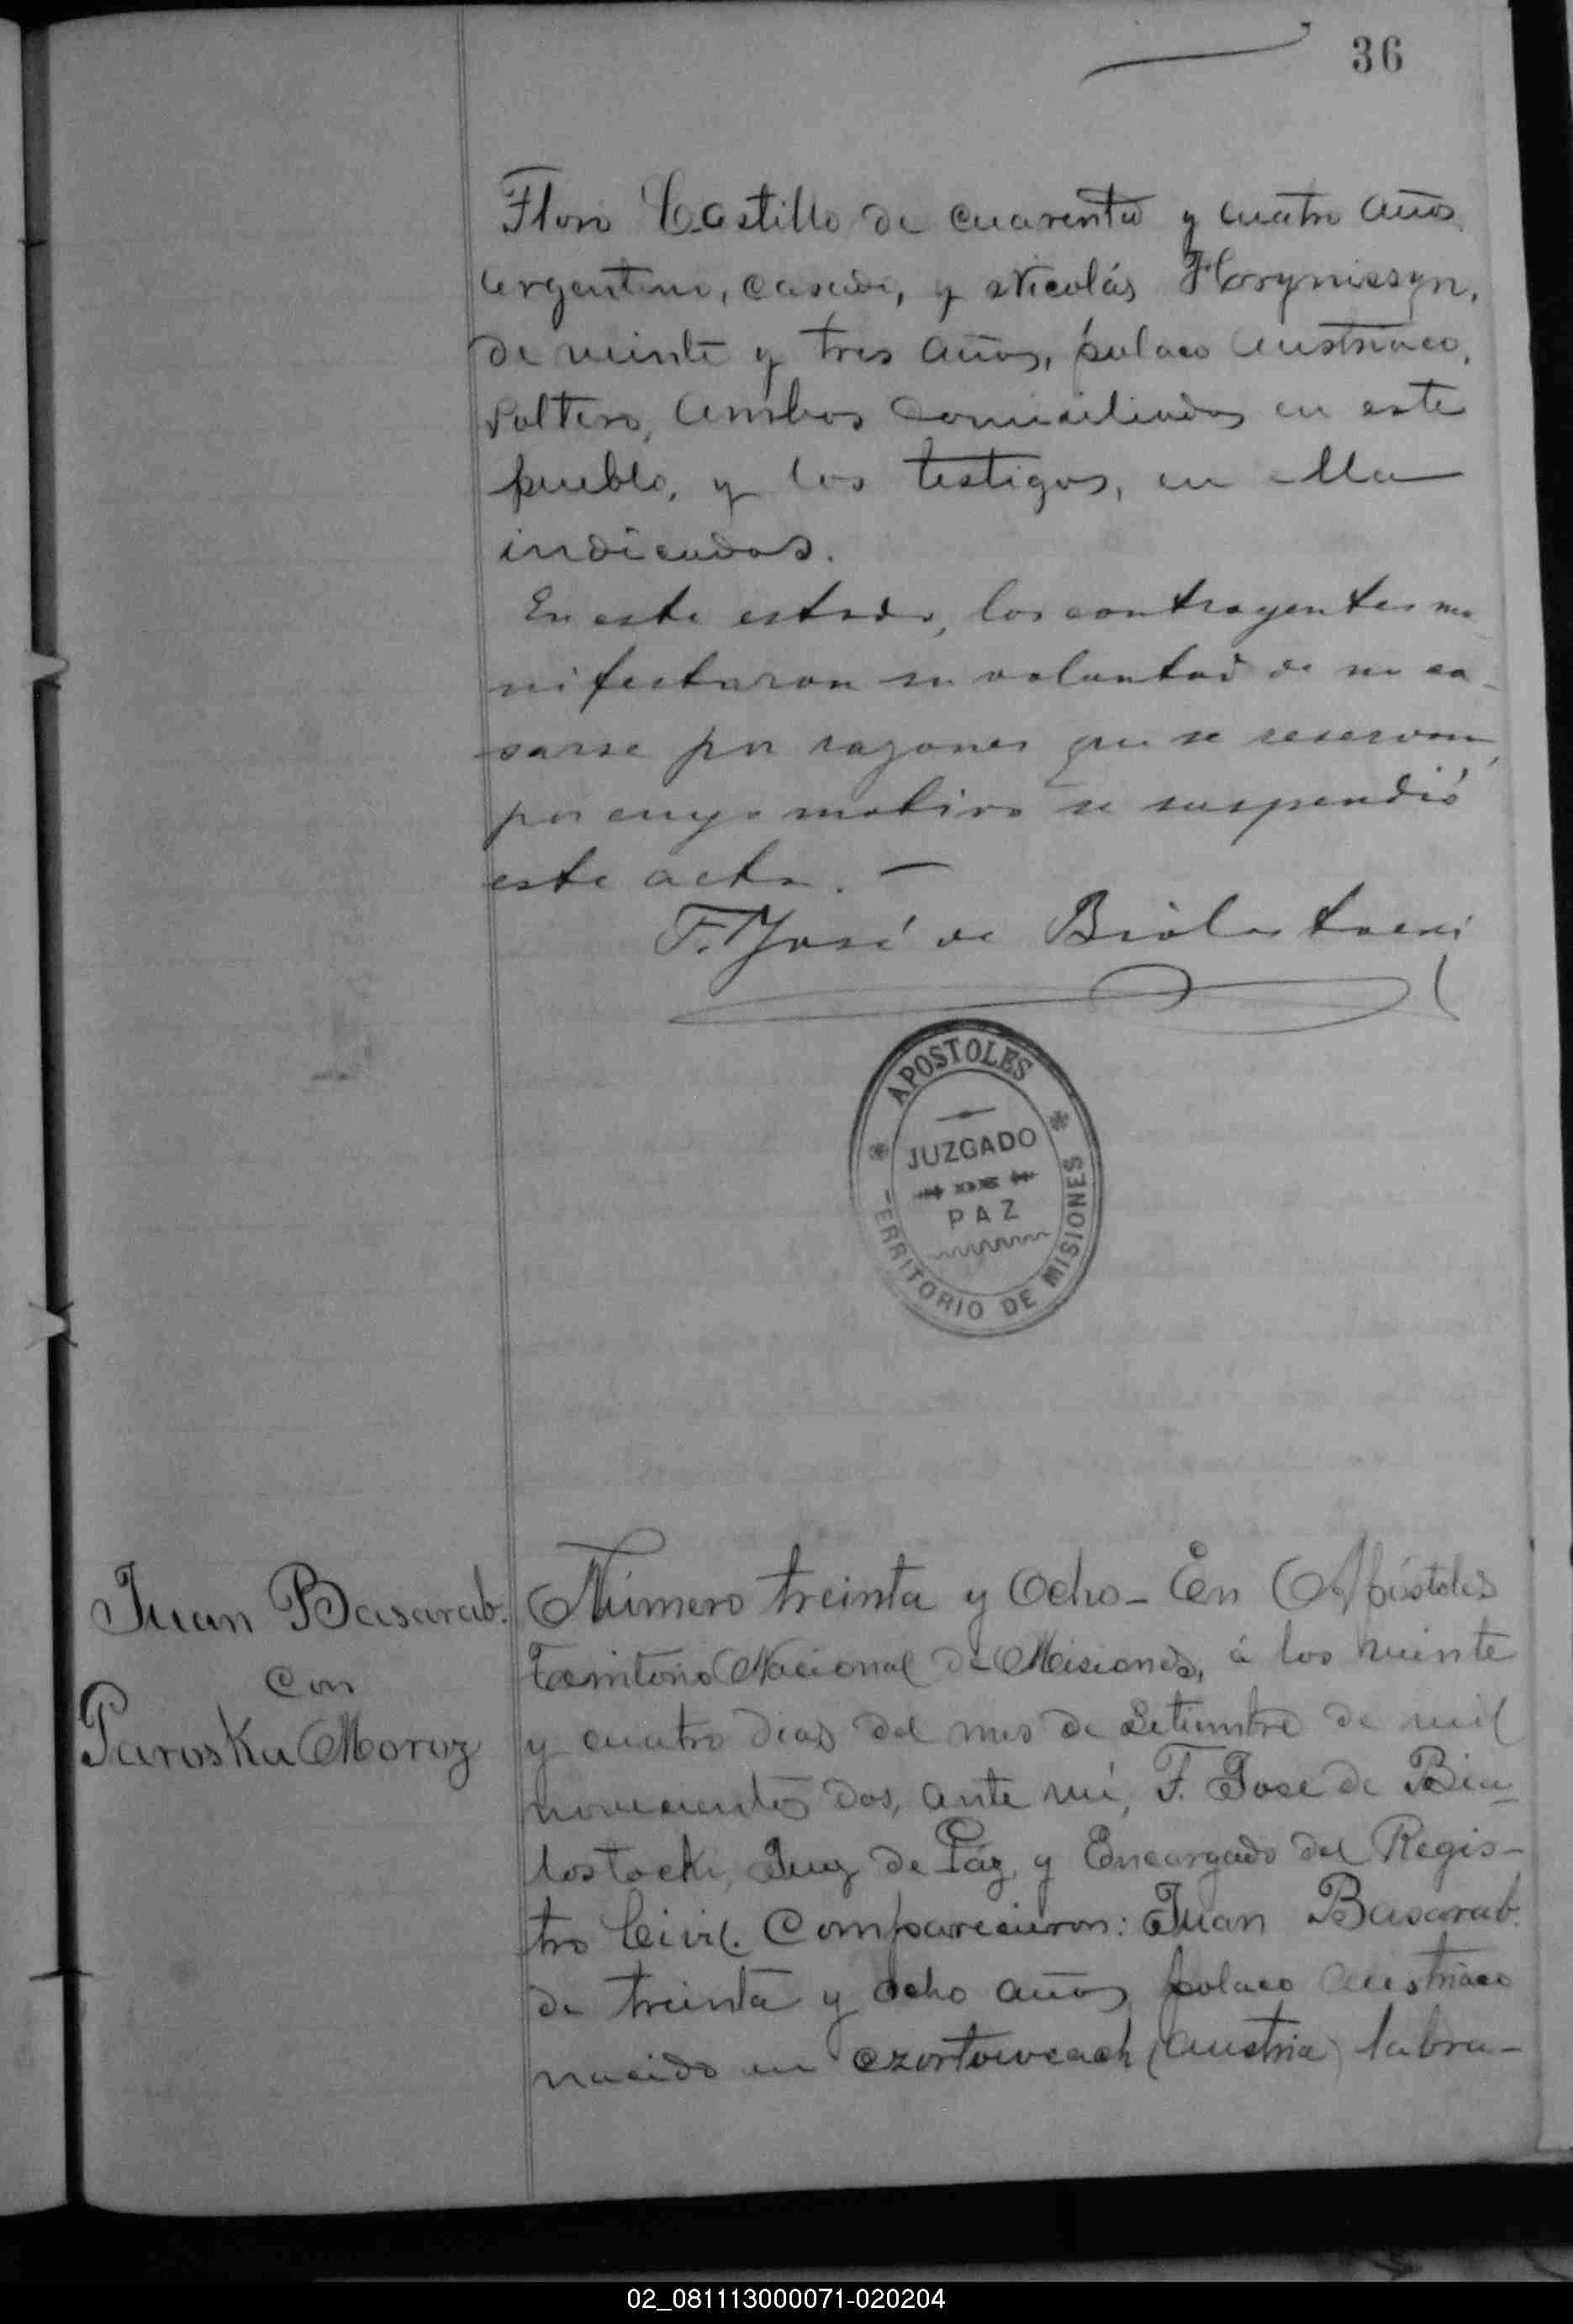 36
Floro Castillo de cuarenta y cuatro años
argentino, casado, y Nicolás Horynissyn,
de veinte y tres años, polaco austriaco,
soltero, ambos domiciliados en este
pueblo, y los testigos, en ella
indicados.
En este estado, los contrayentes ma-
nifestaron su voluntad de no ca-
sarse por razones que se reservan,
por cuyo motivo se suspendió
este acto. —
F. José de Bialostocki
APOSTOLES
JUZGADO
DE
PAZ
TERRITORIO DE MISIONES
Juan Basarab.
con
Paroska Moroz
Número treinta y Ocho - En Apóstoles
Territorio Nacional de Misiones, á los veinte
y cuatro dias del mes de Setiembre de mil
novecientos dos, ante mí, F. Jose de Bia-
lostocki, Juez de Páz y Encargado del Regis-
tro Civil. Comparecieron: Juan Basarab.
de treinta y ocho años, polaco austriaco
nacido en Czortowcach (Austria) labra-
02_081113000071-020204